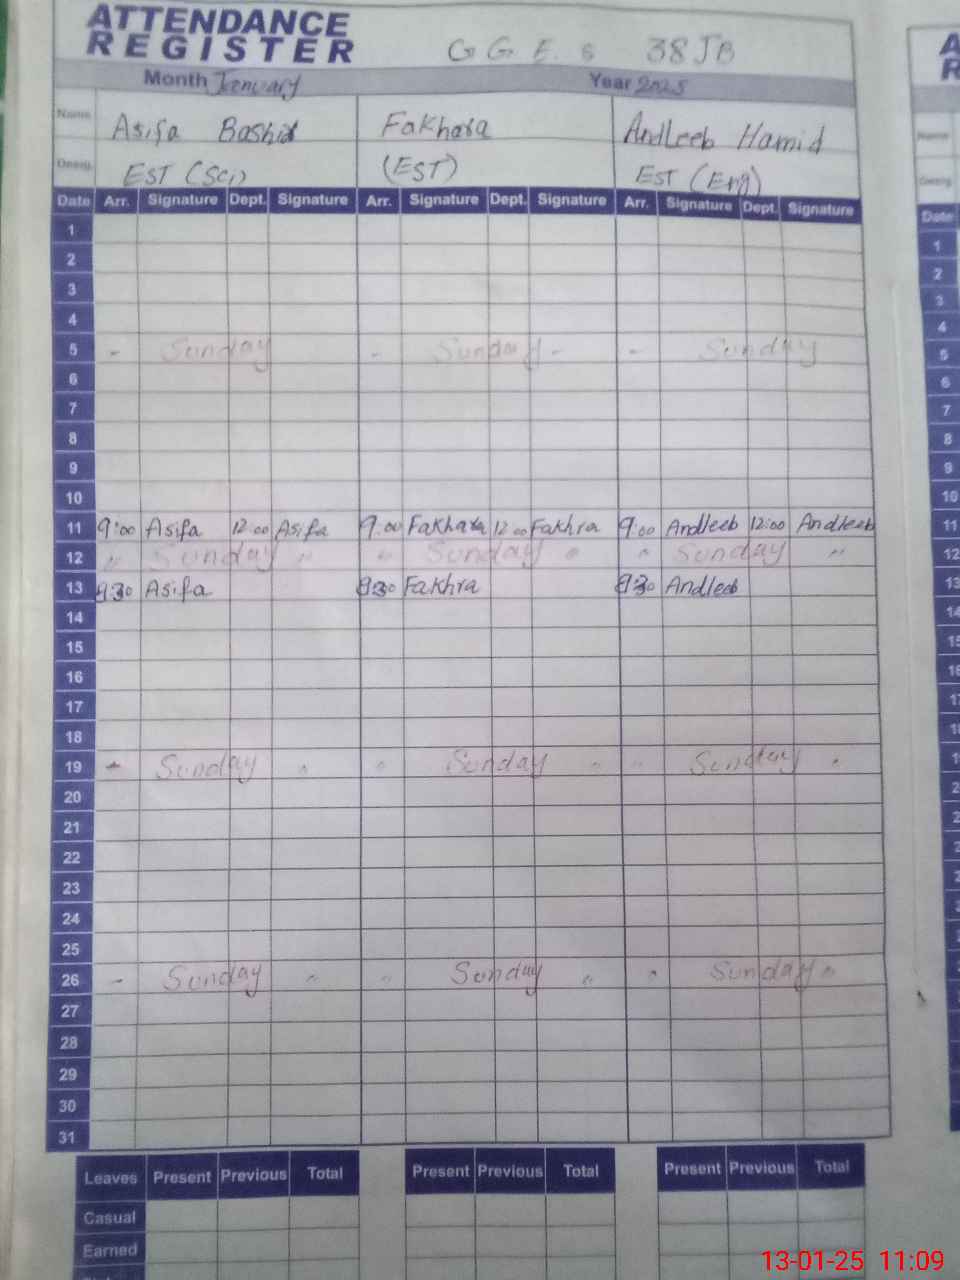 ATTENDANCE
REGISTER
G G E. S 38 JB
Month January Year 2025
Name Asifa Bashir Fakhara Andleeb Hamid
Desig. EST (Sci) (EST) EST (Eng)
Date Arr. Signature Dept. Signature Arr. Signature Dept. Signature Arr. Signature Dept. Signature
1
2
3
4
5 - Sunday - Sunday - - Sunday
6
7
8
9
10
11 9:00 Asifa 12:00 Asifa 9:00 Fakhara 12:00 Fakhra 9:00 Andleeb 12:00 Andleeb
12 " Sunday " " Sunday " " Sunday "
13 8:30 Asifa 8:30 Fakhra 8:30 Andleeb
14
15
16
17
18
19 - Sunday " " Sunday " " Sunday "
20
21
22
23
24
25
26 - Sunday " " Sunday " " Sunday "
27
28
29
30
31
Leaves Present Previous Total Present Previous Total Present Previous Total
Casual
Earned
Name
Date
1
2
3
4
5
6
7
8
9
10
11
12
13
13-01-25 11:09